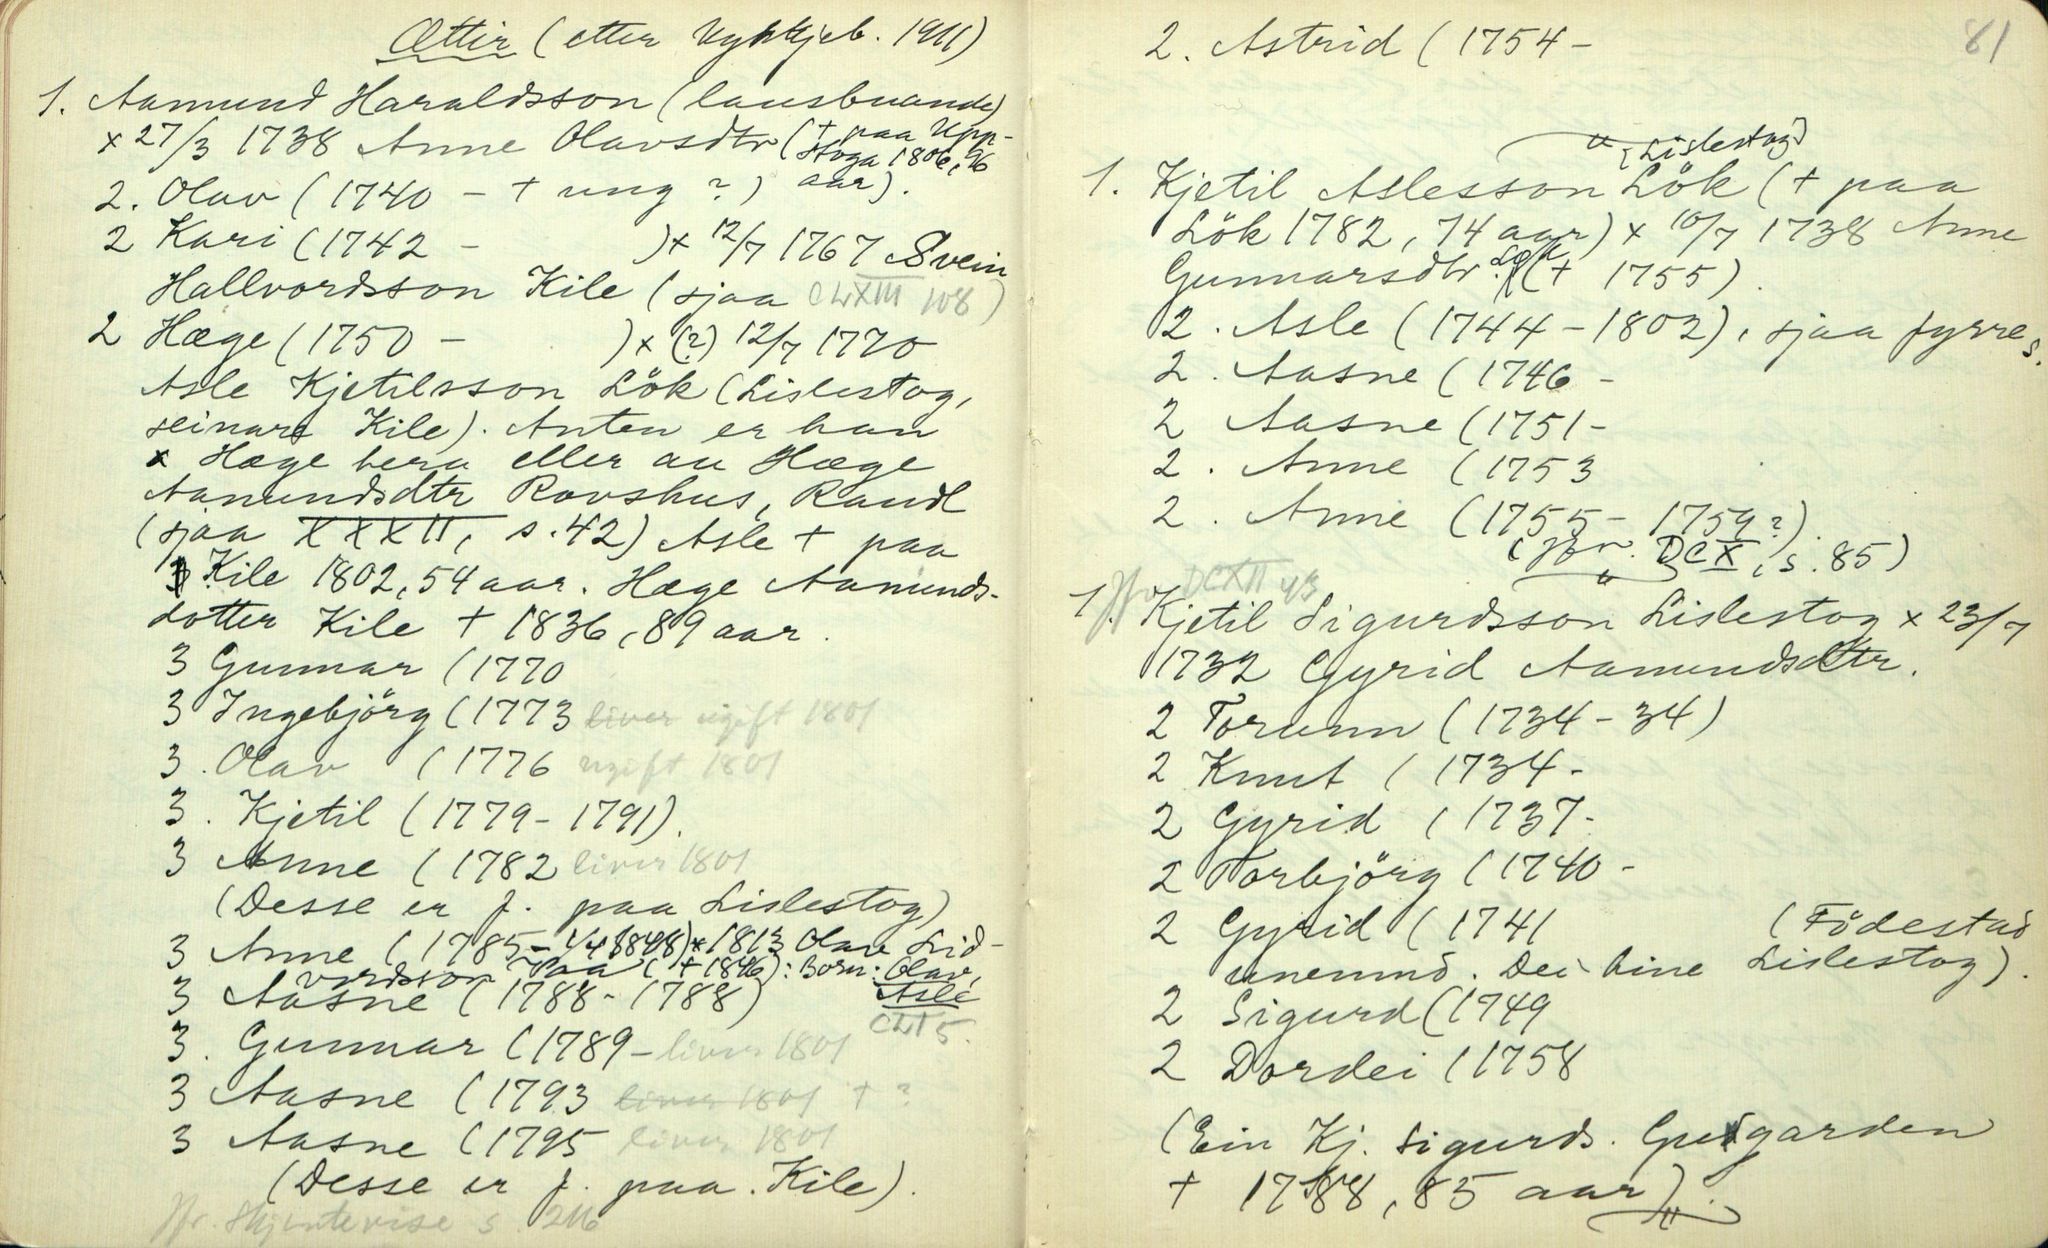 Ættir (etter Kyrkjeb. 1911)
1. Aamund Haraldsson (lausbuande)
× 27/3 1738 Anne Olavsdtr († paa Upp-
stoga 1806, 96
aar).
2. Olav (1740 - † ung?)
2 Kari (1742 - )× 12/7 1767 Svein
Hallvordsson Kile (sjaa CLXIII 108)
2 Hæge (1750 - )× (?) 12/7 1770
Asle Kjetilsson Lök (Lislestog,
seinare Kile). Anten er han
× Hæge hera eller au Hæge
Aamundsdtr Rovshus, Raudl
(sjaa XXXII, s. 42) Asle † paa
Kile 1802, 54 aar. Hæge Aamunds-
dotter Kile † 1836, 89 aar.
3 Gunnar (1770
3 Ingebjörg (1773 liver ugift 1801
3. Olav (1776 ugift 1801
3. Kjetil (1779 - 1791).
3 Anne (1782 liver 1801
(Desse er f. paa Lislestog)
3 Anne (1785 - 1/4 1848) × 1813 Olav Lid-
vordsson († 1846): Born: Olav,
Asle
CLI 5.
3 Aasne (1788 - 1788)
3. Gunnar (1789 - liver 1801
3 Aasne (1793 liver 1801 † ?
3 Aasne (1795 liver 1801
(Desse er f. paa Kile).
Jfr. Skjintevise s. 216
81
2. Astrid (1754 -
(Lislestog)
1. Kjetil Aslesson Lök († paa
Lök 1782, 74 aar) × 10/7 1738 Anne
Gunnarsdtr Lök († 1755).
2. Asle (1744 - 1802), sjaa fyrre s.
2. Aasne (1746 -
2 Aasne (1751 -
2. Anne (1753
2. Anne (1755 - 1759?)
(Jfr. DCX, s. 85)
Jfr. DCXII 43
1. Kjetil Sigurdsson Lislestog × 23/7
1732 Gyrid Aamundsdtr.
2 Torunn (1734 - 34)
2 Knut (1734 -
2 Gyrid (1737 -
2 Torbjörg (1740 -
2 Gyrid (1741 (Födestad
unemnd. Dei hine Lislestog).
2 Sigurd (1749
2 Dordei (1758
(Ein Kj. Sigurds. Gutgarden
† 1788, 85 aar).